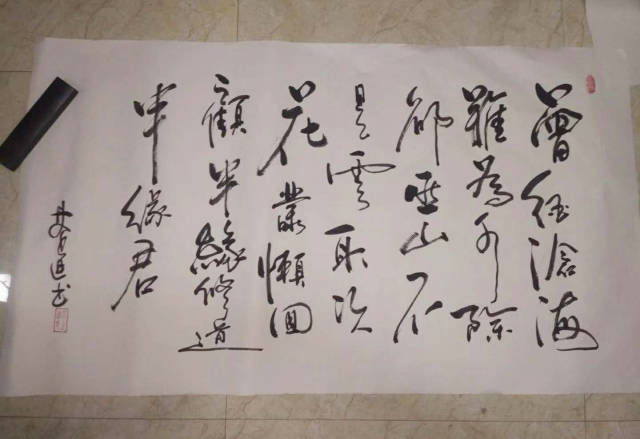 曾經滄海
難為水除
卻巫山不
是雲取次
花叢懶回
顧半緣修道
半緣君
书